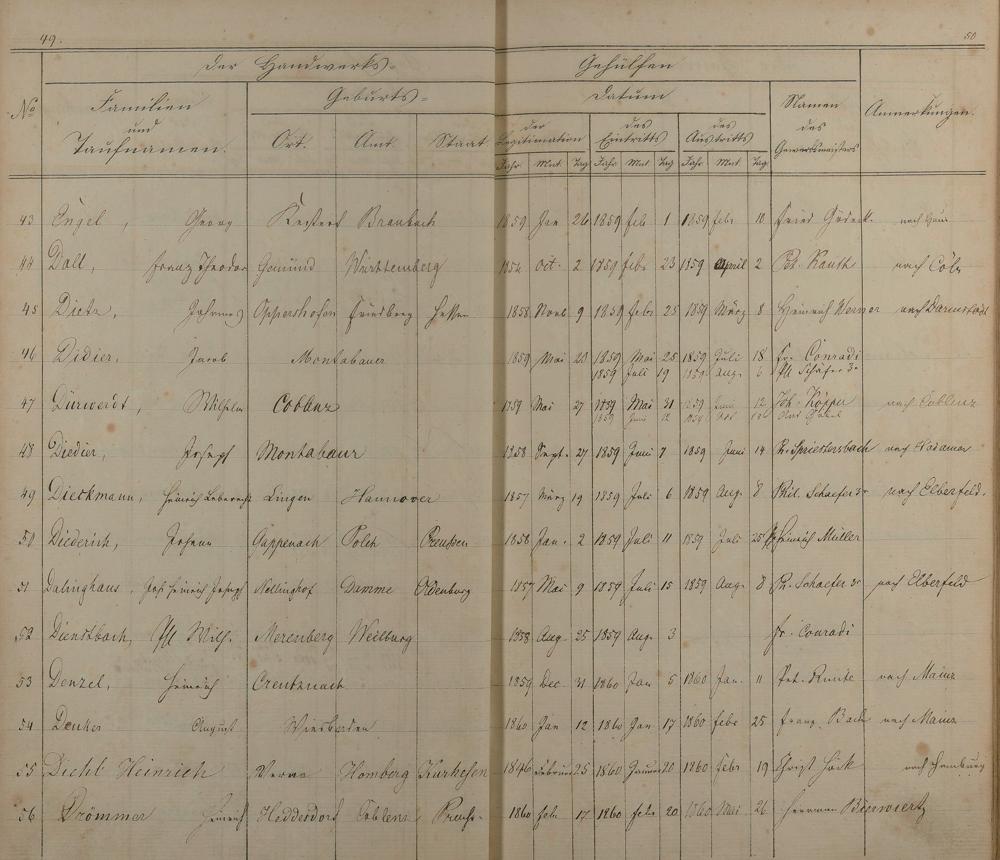 49.
50
Der Handwerks=
Gehülfen
No
Familien
und
Taufnamen.
Geburts=
Ort. Amt. Staat
Datum
der Legitimation
des Eintritts
des Austritts
Jahr Mnt Tag Jahr Mnt Tag Jahr Mnt Tag
Namen
des
Gewerbsmeisters
Anmerkungen.
43 Engel, Georg Kestert Braubach 1859 Jan 26 1859 feb 1 1859 febr 10 Fried nach
44 Doll, Franz Theodor Gemünd Württemberg oct. 2 1859 febr 23 1859 April 2 Pet. Kauth nach Cöln
45 Dietz, Johannes Oppershofen Friedberg Hessen 1858 Novb 9 1859 febr 25 1859 März 8 Heinrich Werner nach Darmstadt
46 Didier, Jacob Montabauer 1859 Mai 20 1859 Mai 25 1859 Juli 18 Fr. Conradi
1859 Juli 19 1859 Aug. 6 Phl Schäfer 3r
47 Dürwerdt, Wilhelm Coblenz 1859 Mai 27 1859 Mai 31 1859 Juni 12 Joh. Köpper nach Coblenz
1859 Juni 12 1859
48 Diedier, Joseph Montabaur 1858 Sept. 27 1859 Juni 7 1859 Juni 14 Ph. Spriestersbach nach Hadamar
49 Dieckmann, Heinrich Leberecht Lingen Hannover 1857 März 19 1859 Juli 6 1859 Aug. 8 Phil. Schaefer 3r nach Elberfeld.
50 Diederich, Johann Gappenach Polch Preussen 1858 Jan. 2 1859 Juli 11 1859 Juli 25 Heinrich Müller
51 Dalinghaus, Joh Heinrich Joseph Nellinghof Damme Oldenburg 1857 Mai 9 1859 Juli 15 1859 Aug. 8 Ph. Schaefer 3r nach Elberfeld
52 Dienstbach, Phl Wilh. Merenberg Weilburg 1858 Aug. 25 1859 Aug. 3 Fr. Conradi
53 Denzel, Heinrich Creutznach 1859 Dec. 31 1860 Jan 5 1860 Jan. 11 Pet. nach Mainz
54 Denker August Wiesbaden 1860 Jan 12 1860 Jan 17 1860 febr 25 Franz Bach nach Mainz
55 Diehl Heinrich Verna Homberg Kurhessen 1846 Februar 25 1860 Januar 20 1860 Febr 19 Christ nach Hamburg
56 Drömmer Heinrich Heddesdorf Coblenz Preuss. 1860 feb. 17 1860 febr 20 1860 Mai 26 Herman Bierwiertz